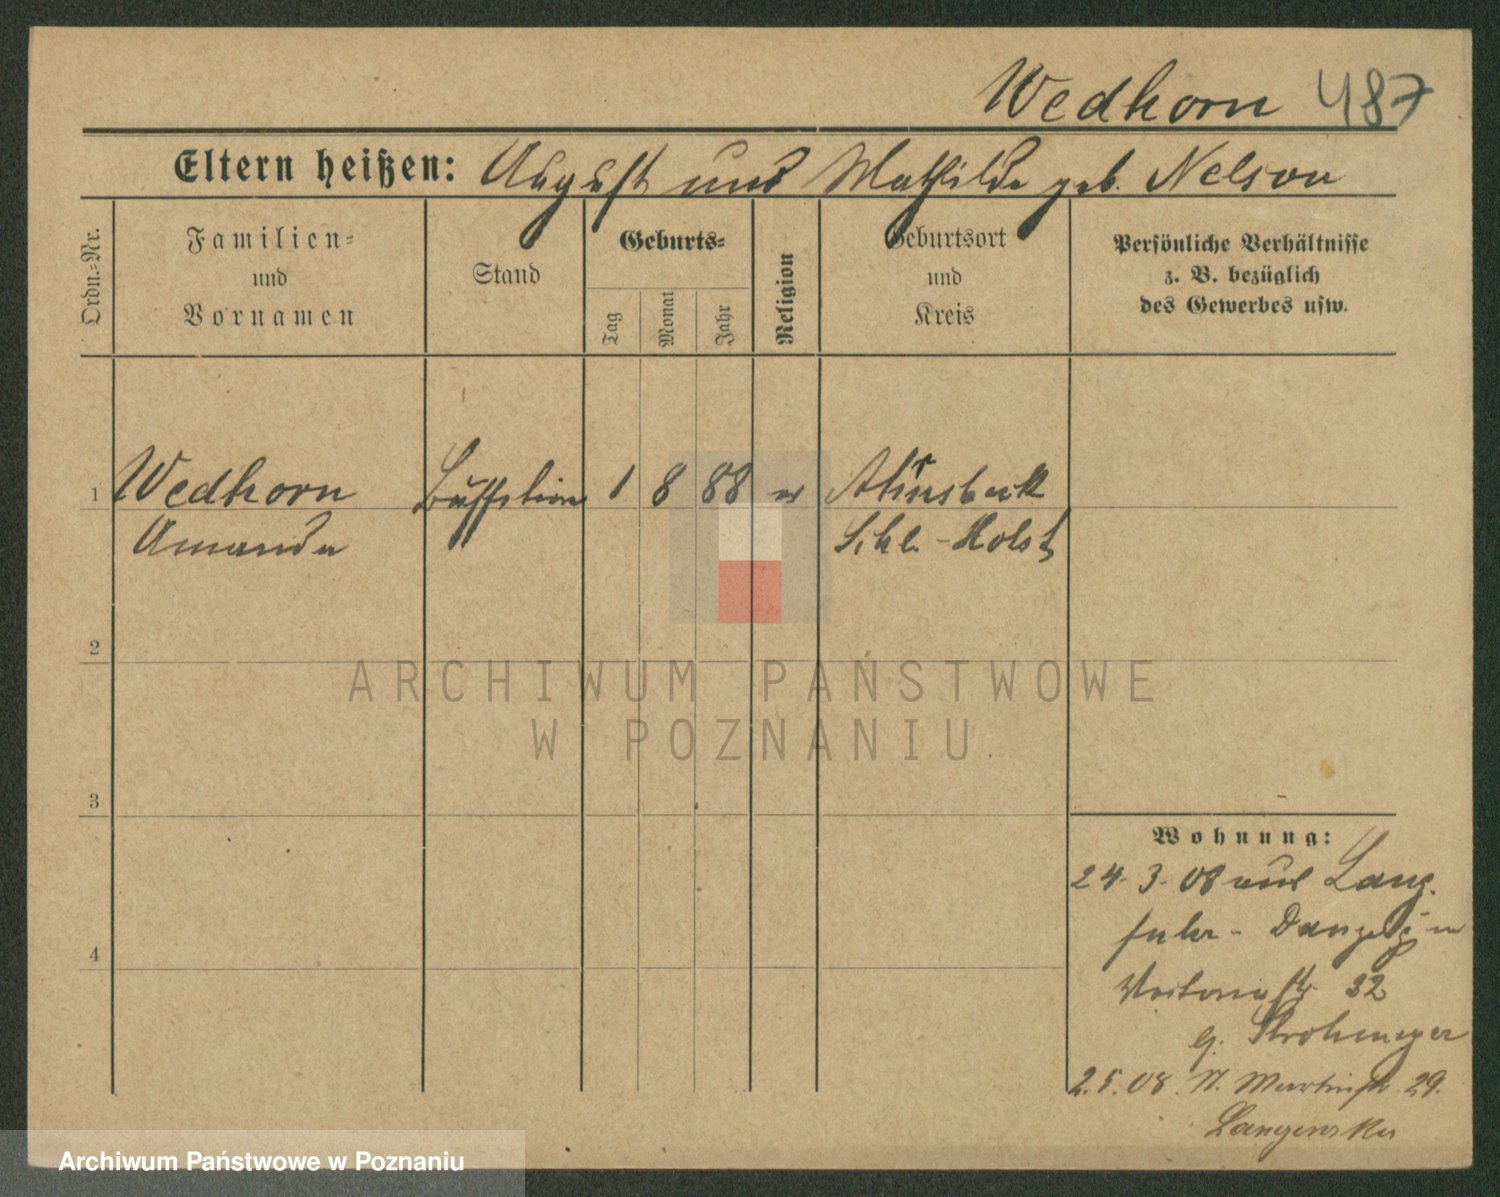 Wedhorn 487
Eltern heißen: August und Mathilde geb. Nelson
Ordn.-Nr.
Familien-
und
Vornamen
Stand
Geburts-
Tag
Monat
Jahr
Religion
Geburtsort
und
Kreis
Persönliche Verhältnisse
z. B. bezüglich
des Gewerbes usw.
1 Wedhorn 1 8 88 ev Ahrensbeck
Amanda Schl.-Holst
2
3
4
Wohnung:
24-3-08 aus Lang-
fuhr - Danzig in
32
Strohmeyer
2.5.08. St. Martinstr. 29.
ARCHIWUM PAŃSTWOWE
W POZNANIU
Archiwum Państwowe w Poznaniu